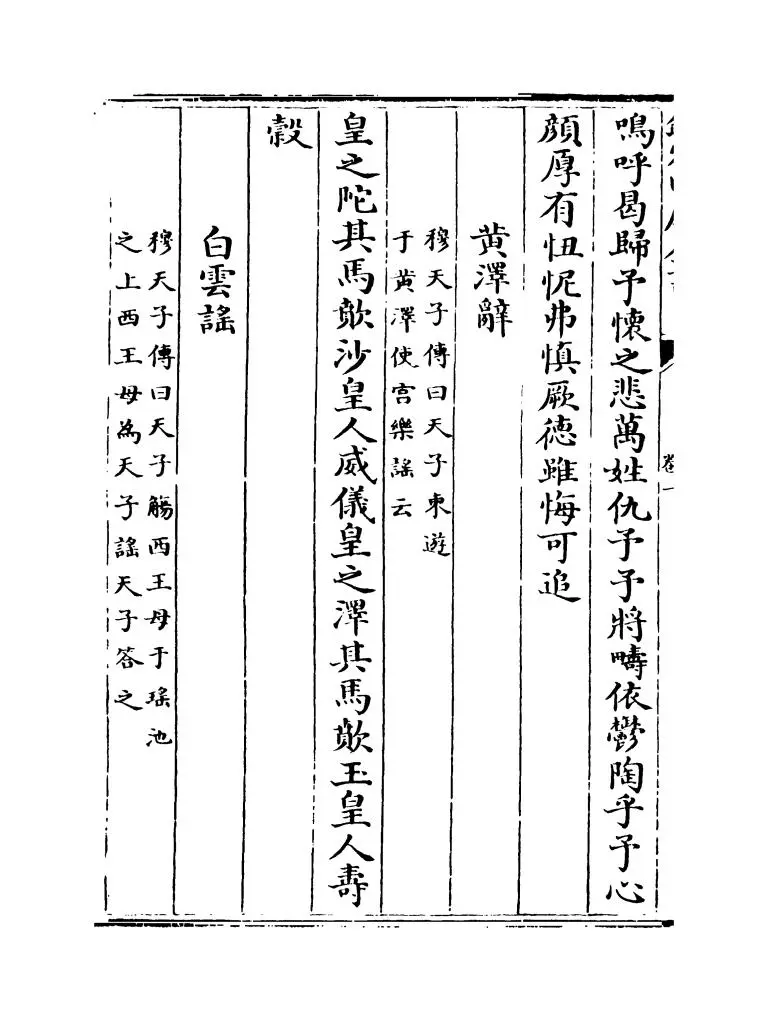 嗚呼曷歸予懷之悲萬姓仇予予將疇依鬱陶乎予心
顔厚有忸怩弗慎厥徳雖悔可追
黄澤辭
穆天子傳曰天子東遊
于黄澤使宫樂謡云
皇之陀其馬歕沙皇人威儀皇之澤其馬歕玉皇人壽
糓
白雲謡
穆天子傳曰天子觴西王母于瑤池
之上西王母為天子謡天子答之
卷一